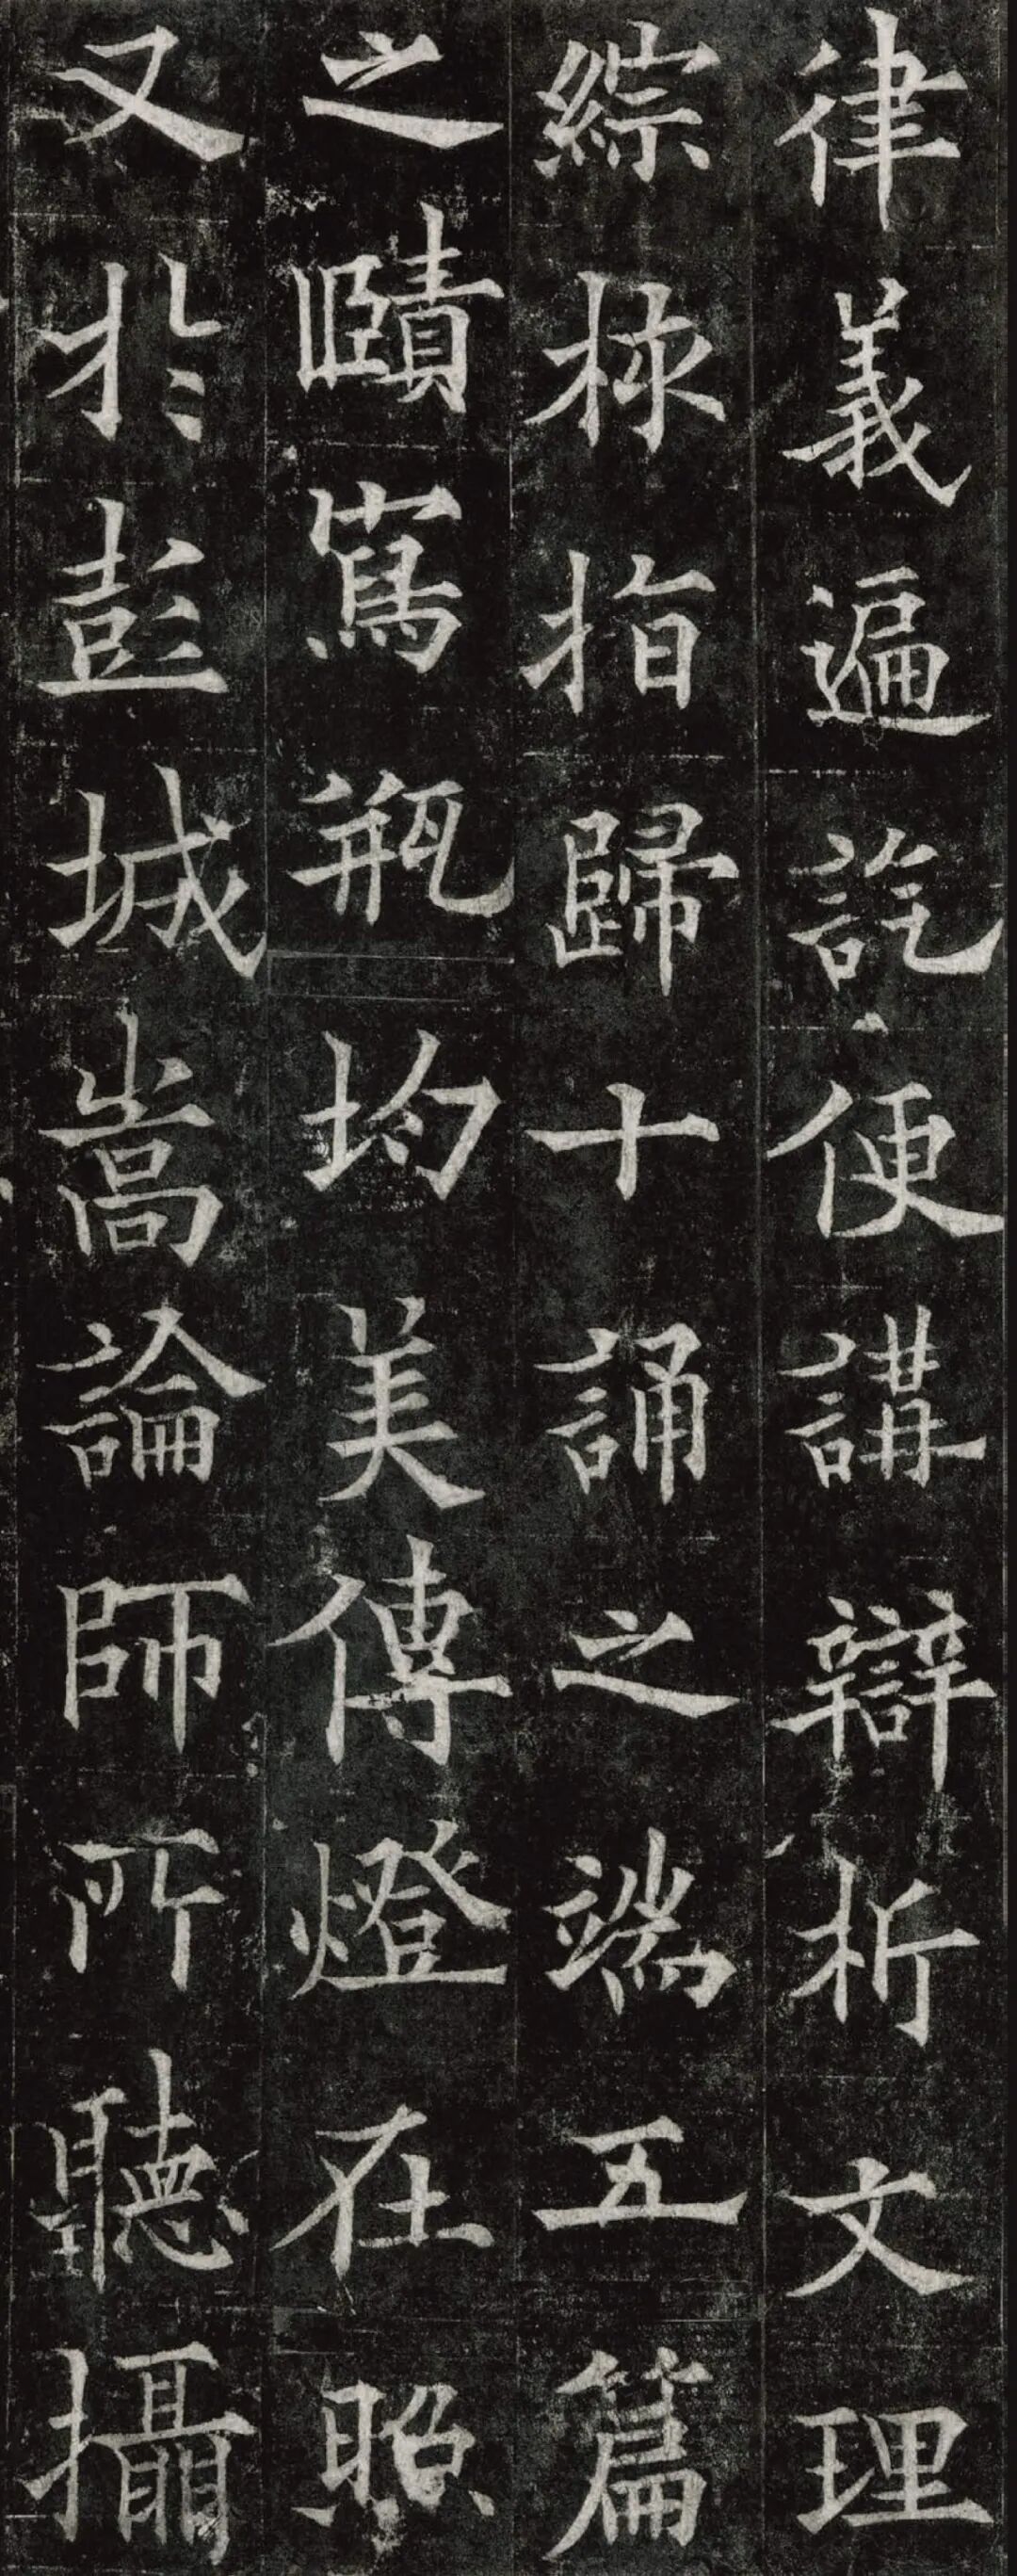 律義遍訖便講辯析文理
綜標指歸十誦之端五篇
之賾寫瓶均美傳燈在照
又於彭城嵩論師所聽攝